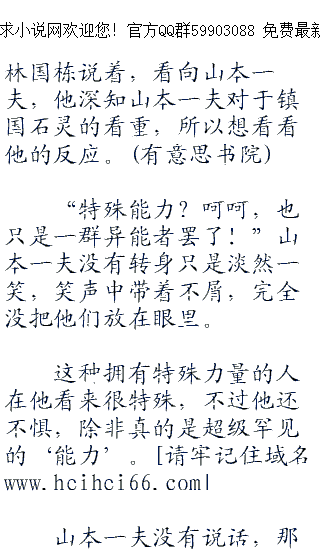 求小说网欢迎您！官方QQ群59903088 免费最新
林国栋说着，看向山本一
夫，他深知山本一夫对于镇
国石灵的看重，所以想看看
他的反应。(有意思书院)
“特殊能力？呵呵，也
只是一群异能者罢了！”山
本一夫没有转身只是淡然一
笑，笑声中带着不屑，完全
没把他们放在眼里。
这种拥有特殊力量的人
在他看来很特殊，不过他还
不惧，除非真的是超级罕见
的‘能力’。[请牢记住域名
www.hcihci66.com|
山本一夫没有说话，那